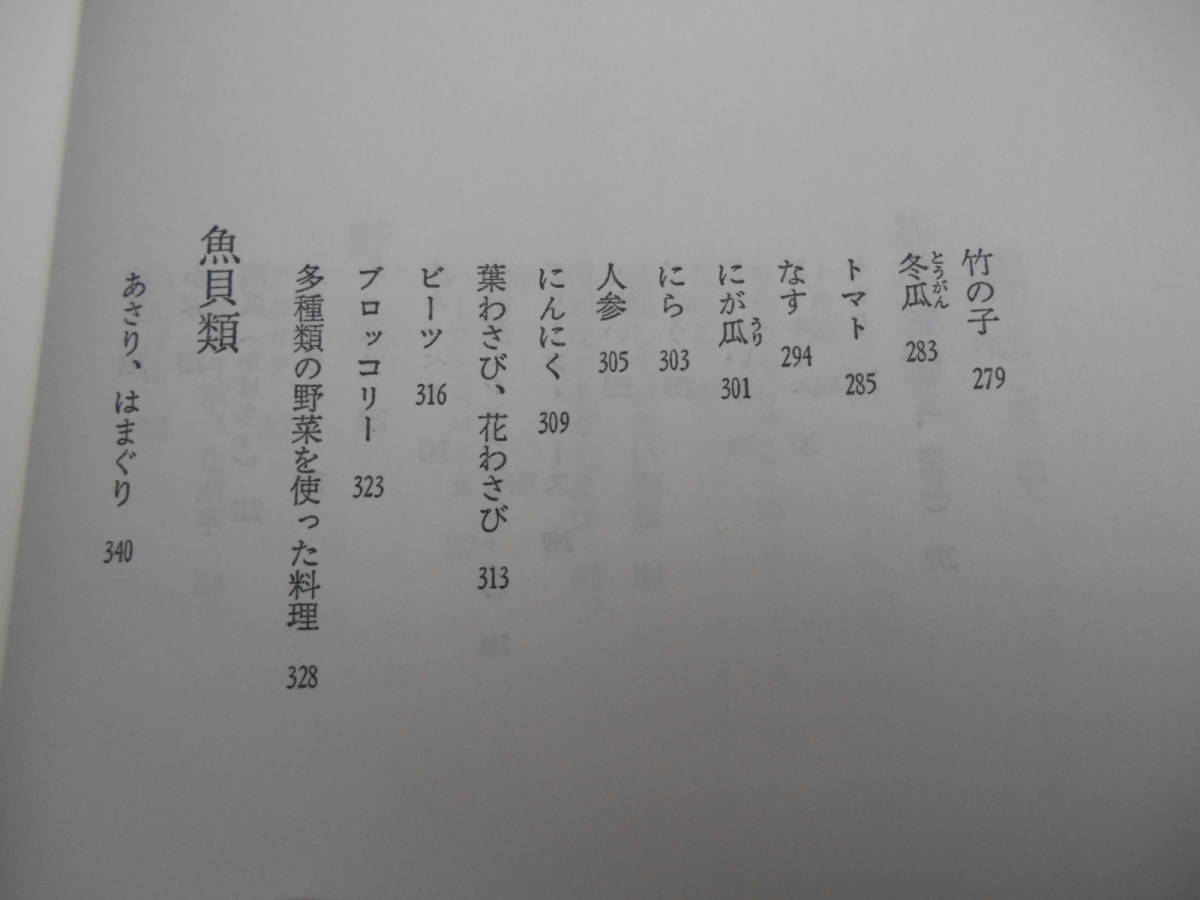 竹の子 279
冬瓜 とうがん 283
トマト 285
なす 294
にが瓜 うり 301
にら 303
人参 305
にんにく 309
葉わさび、花わさび 313
ビーツ 316
ブロッコリー 323
多種類の野菜を使った料理 328
魚貝類
あさり、はまぐり 340